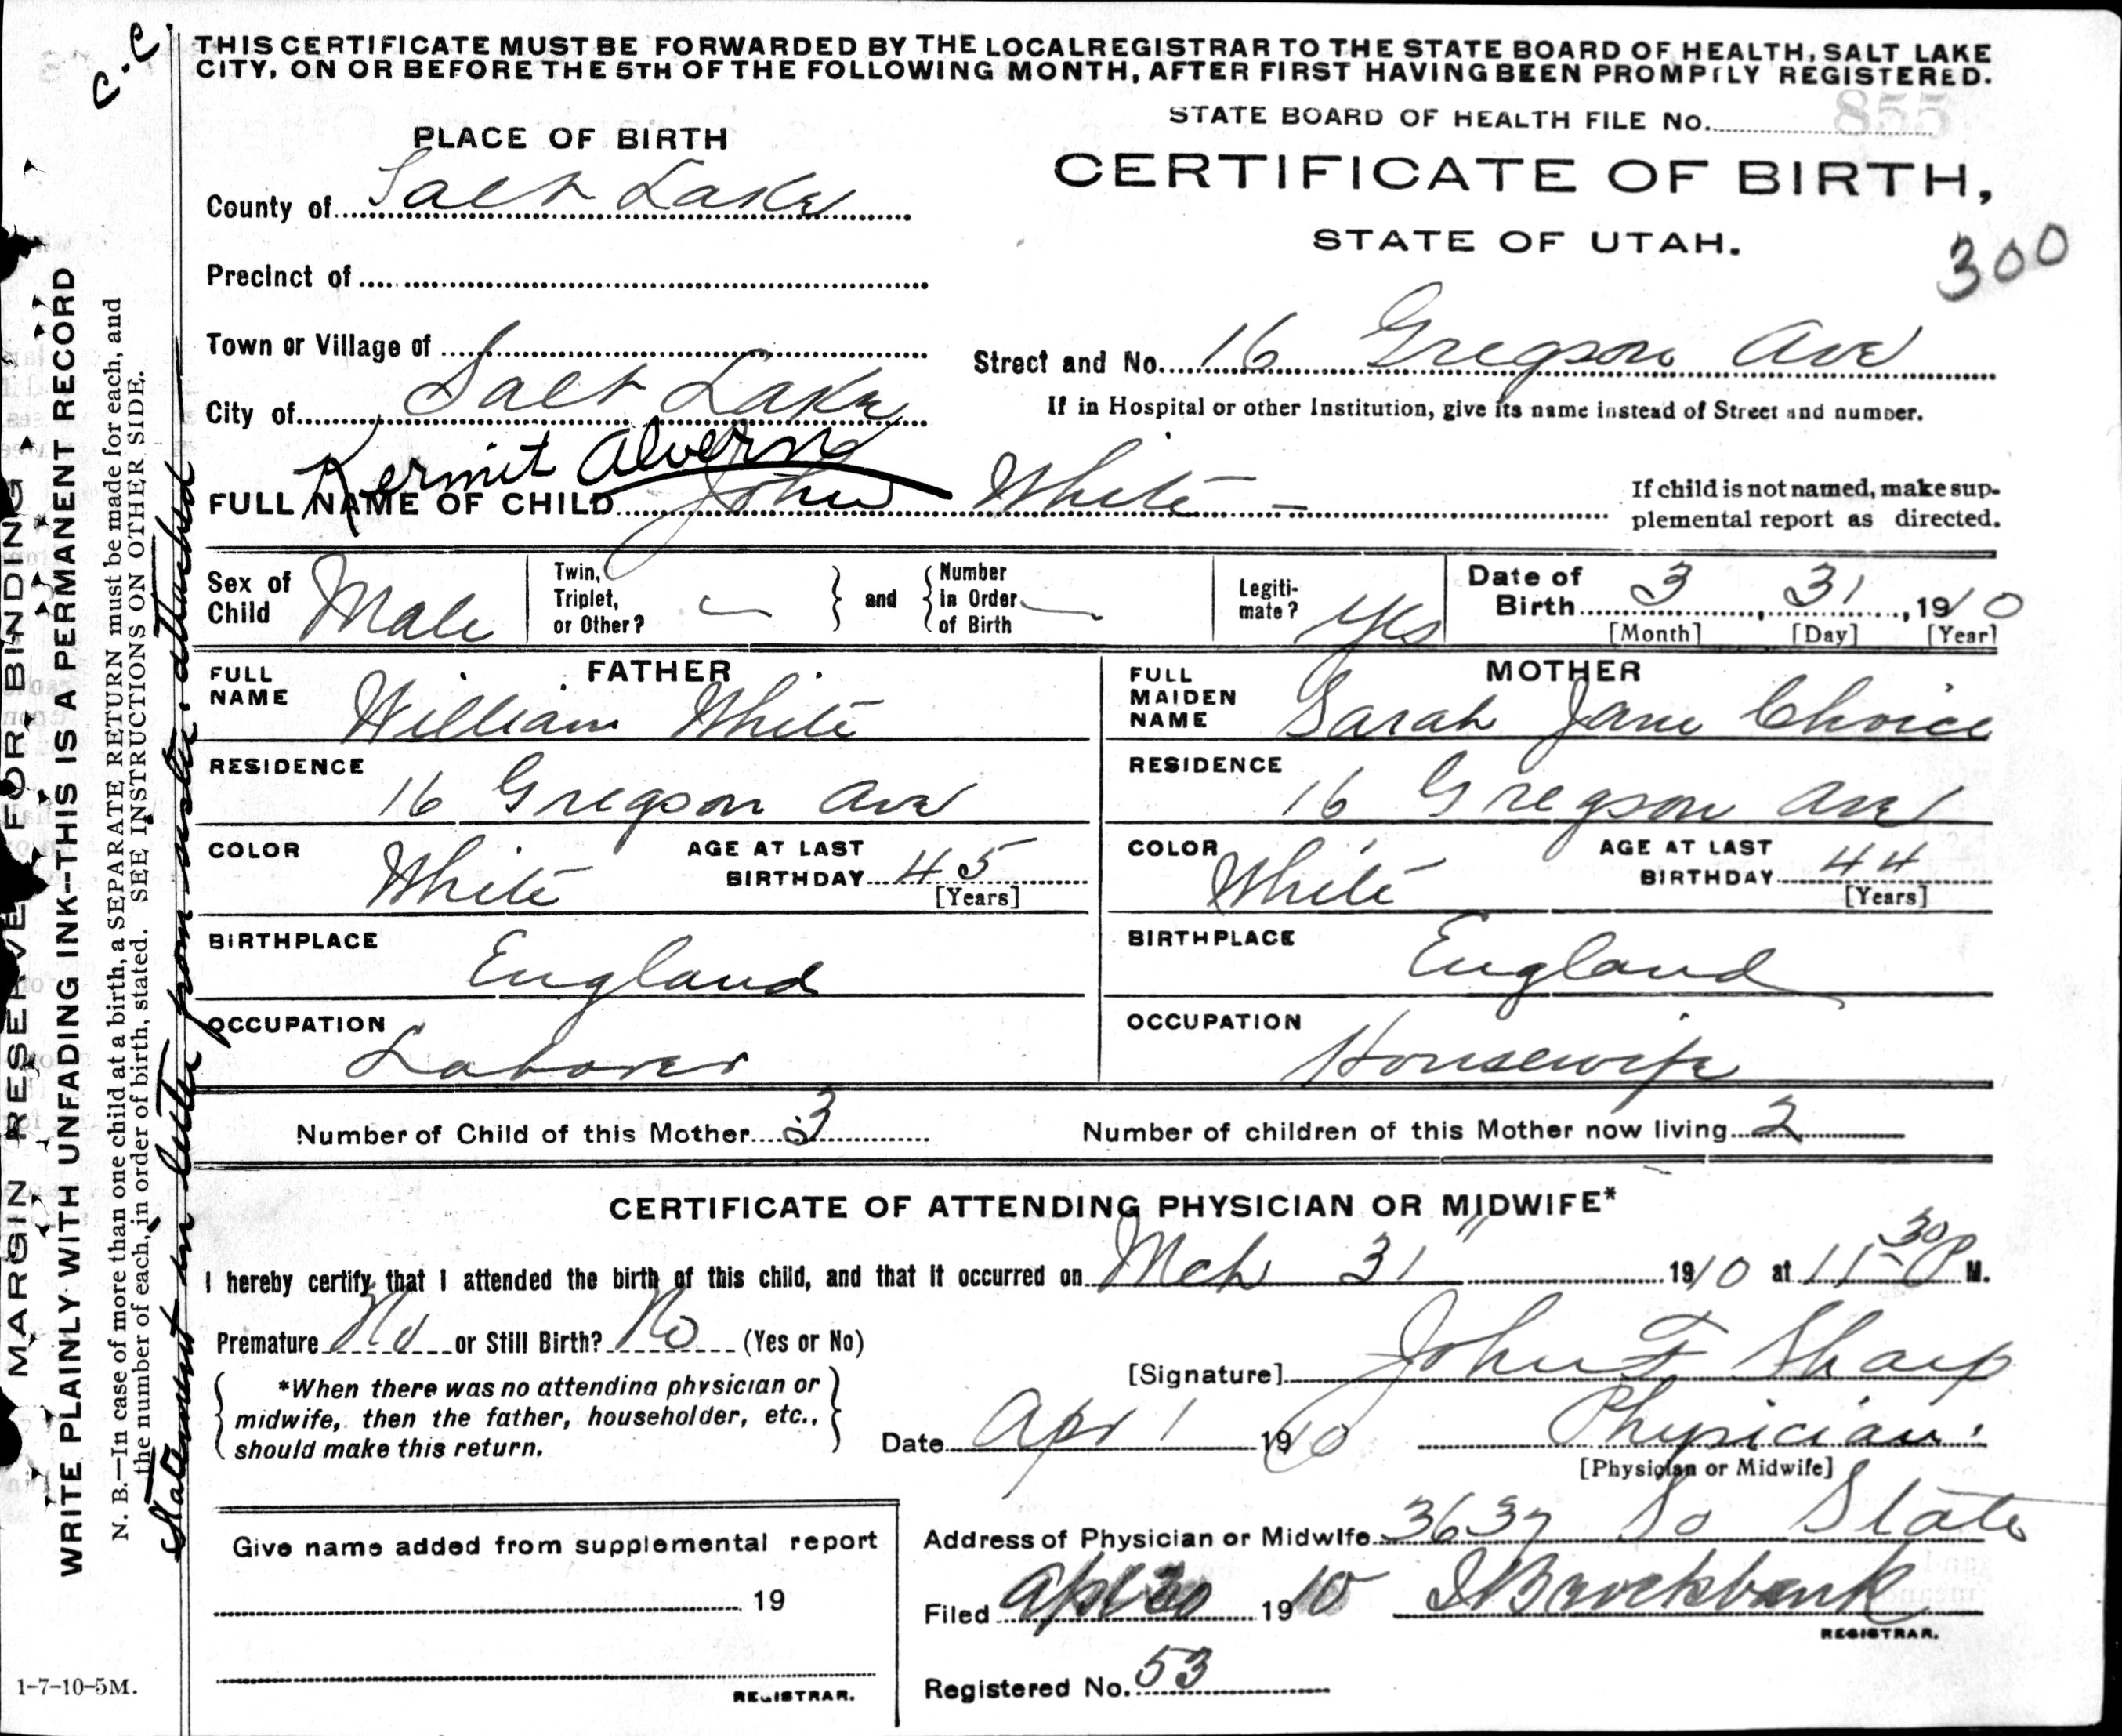 THIS CERTIFICATE MUST BE FORWARDED BY THE LOCAL REGISTRAR TO THE STATE BOARD OF HEALTH, SALT LAKE
CITY, ON OR BEFORE THE 5TH OF THE FOLLOWING MONTH, AFTER FIRST HAVING BEEN PROMPTLY REGISTERED.
c.c
STATE BOARD OF HEALTH FILE NO. 855
PLACE OF BIRTH
CERTIFICATE OF BIRTH,
STATE OF UTAH.
300
County of Salt Lake
Precinct of
Town or Village of
Street and No. 16 Gregson Ave
City of Salt Lake
If in Hospital or other Institution, give its name instead of Street and number.
Kermit Alverno
FULL NAME OF CHILD John White -
If child is not named, make sup-
plemental report as directed.
Sex of Child Male
Twin, Triplet, or Other? — and Number in Order of Birth —
Legiti-mate? Yes
Date of Birth 3, 31, 1910
[Month] [Day] [Year]
FATHER
FULL NAME William White
RESIDENCE 16 Gregson Ave
COLOR White AGE AT LAST BIRTHDAY 45 [Years]
BIRTHPLACE England
OCCUPATION Laborer
MOTHER
FULL MAIDEN NAME Sarah Jane Choice
RESIDENCE 16 Gregson Ave
COLOR White AGE AT LAST BIRTHDAY 44 [Years]
BIRTHPLACE England
OCCUPATION Housewife
Number of Child of this Mother 3 Number of children of this Mother now living 2
CERTIFICATE OF ATTENDING PHYSICIAN OR MIDWIFE*
I hereby certify that I attended the birth of this child, and that it occurred on Mch 31" 1910 at 11 30 P M.
Premature No or Still Birth? No (Yes or No)
[Signature] John F Sharp
*When there was no attending physician or
midwife, then the father, householder, etc.,
should make this return.
Date Apr 1 1910
Physician
[Physician or Midwife]
Address of Physician or Midwife 3637 So State
Give name added from supplemental report
19
REGISTRAR.
Filed Apl 30 1910 Brockbank
REGISTRAR.
Registered No. 53
1-7-10-5M.
MARGIN RESERVE FOR BINDING
WRITE PLAINLY WITH UNFADING INK--THIS IS A PERMANENT RECORD
N. B.—In case of more than one child at a birth, a SEPARATE RETURN must be made for each, and
the number of each, in order of birth, stated. SEE INSTRUCTIONS ON OTHER SIDE.
Statement in letter from sister attached